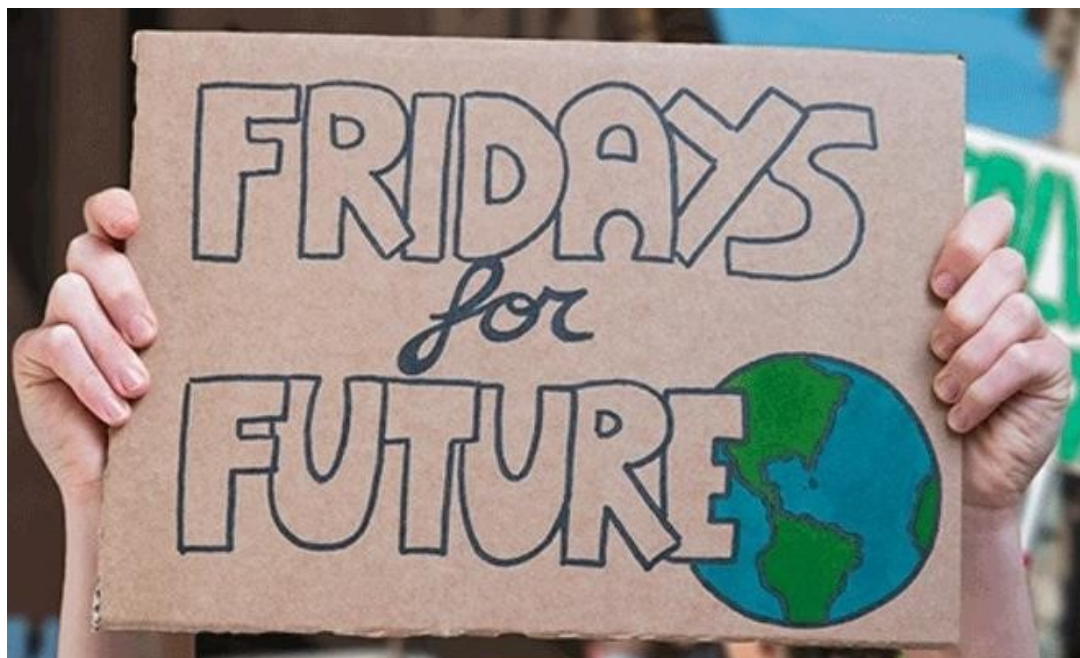 FRIDAYS
for
FUTURE